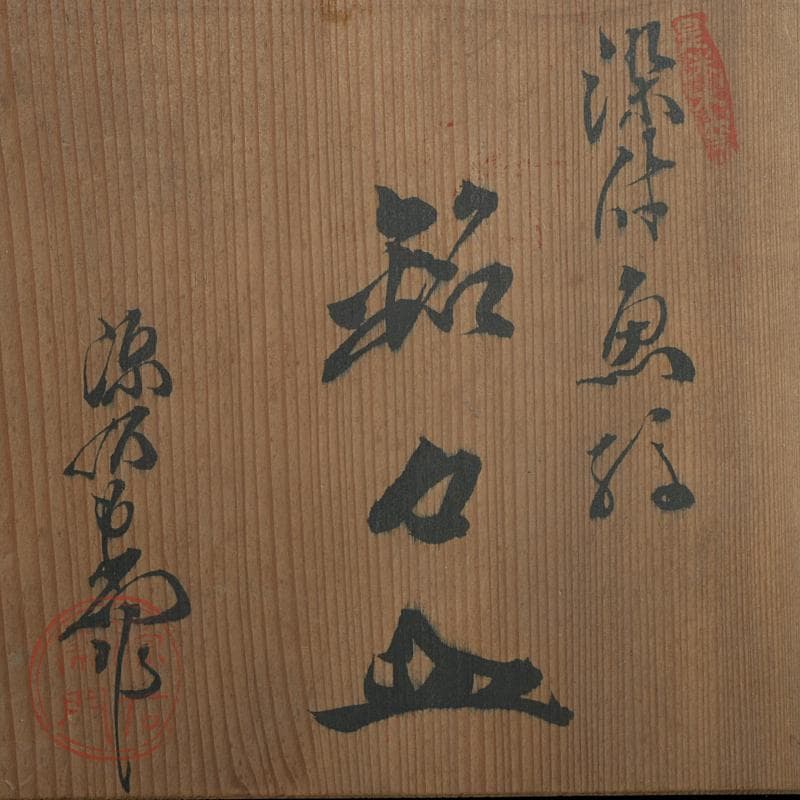 染付魚
銘々皿
源右衛門作